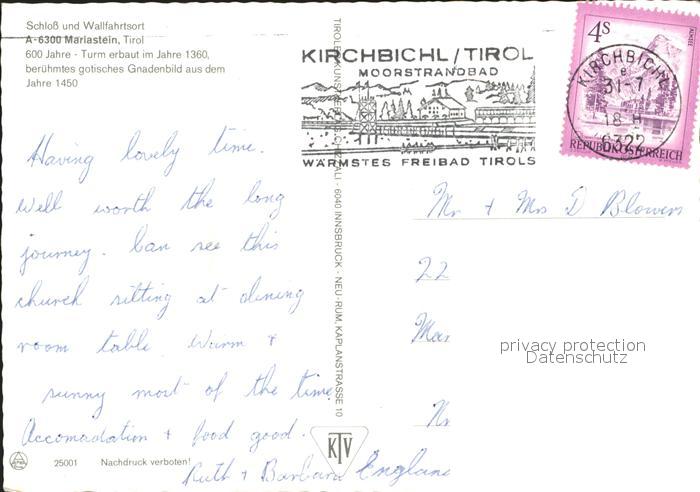 Schloß und Wallfahrtsort
A-6300 Mariastein, Tirol
600 Jahre - Turm erbaut im Jahre 1360,
berühmtes gotisches Gnadenbild aus dem
Jahre 1450
KIRCHBICHL/TIROL
MOORSTRANDBAD
WÄRMSTES FREIBAD TIROLS
4S
KIRCHBICHL
31-7
18 H
6322
REPUBLIK ÖSTERREICH
Having lovely time.
Well worth the long
journey. Can see this
church sitting at dining
room table. Warm +
sunny most of the time
Accomadation + food good.
Ruth + Barbara
Mr + Mrs D Blowers
22
privacy protection
Datenschutz
England
6040 INNSBRUCK - NEU-RUM, KAPLANSTRASSE 10
KTV
25001 Nachdruck verboten!